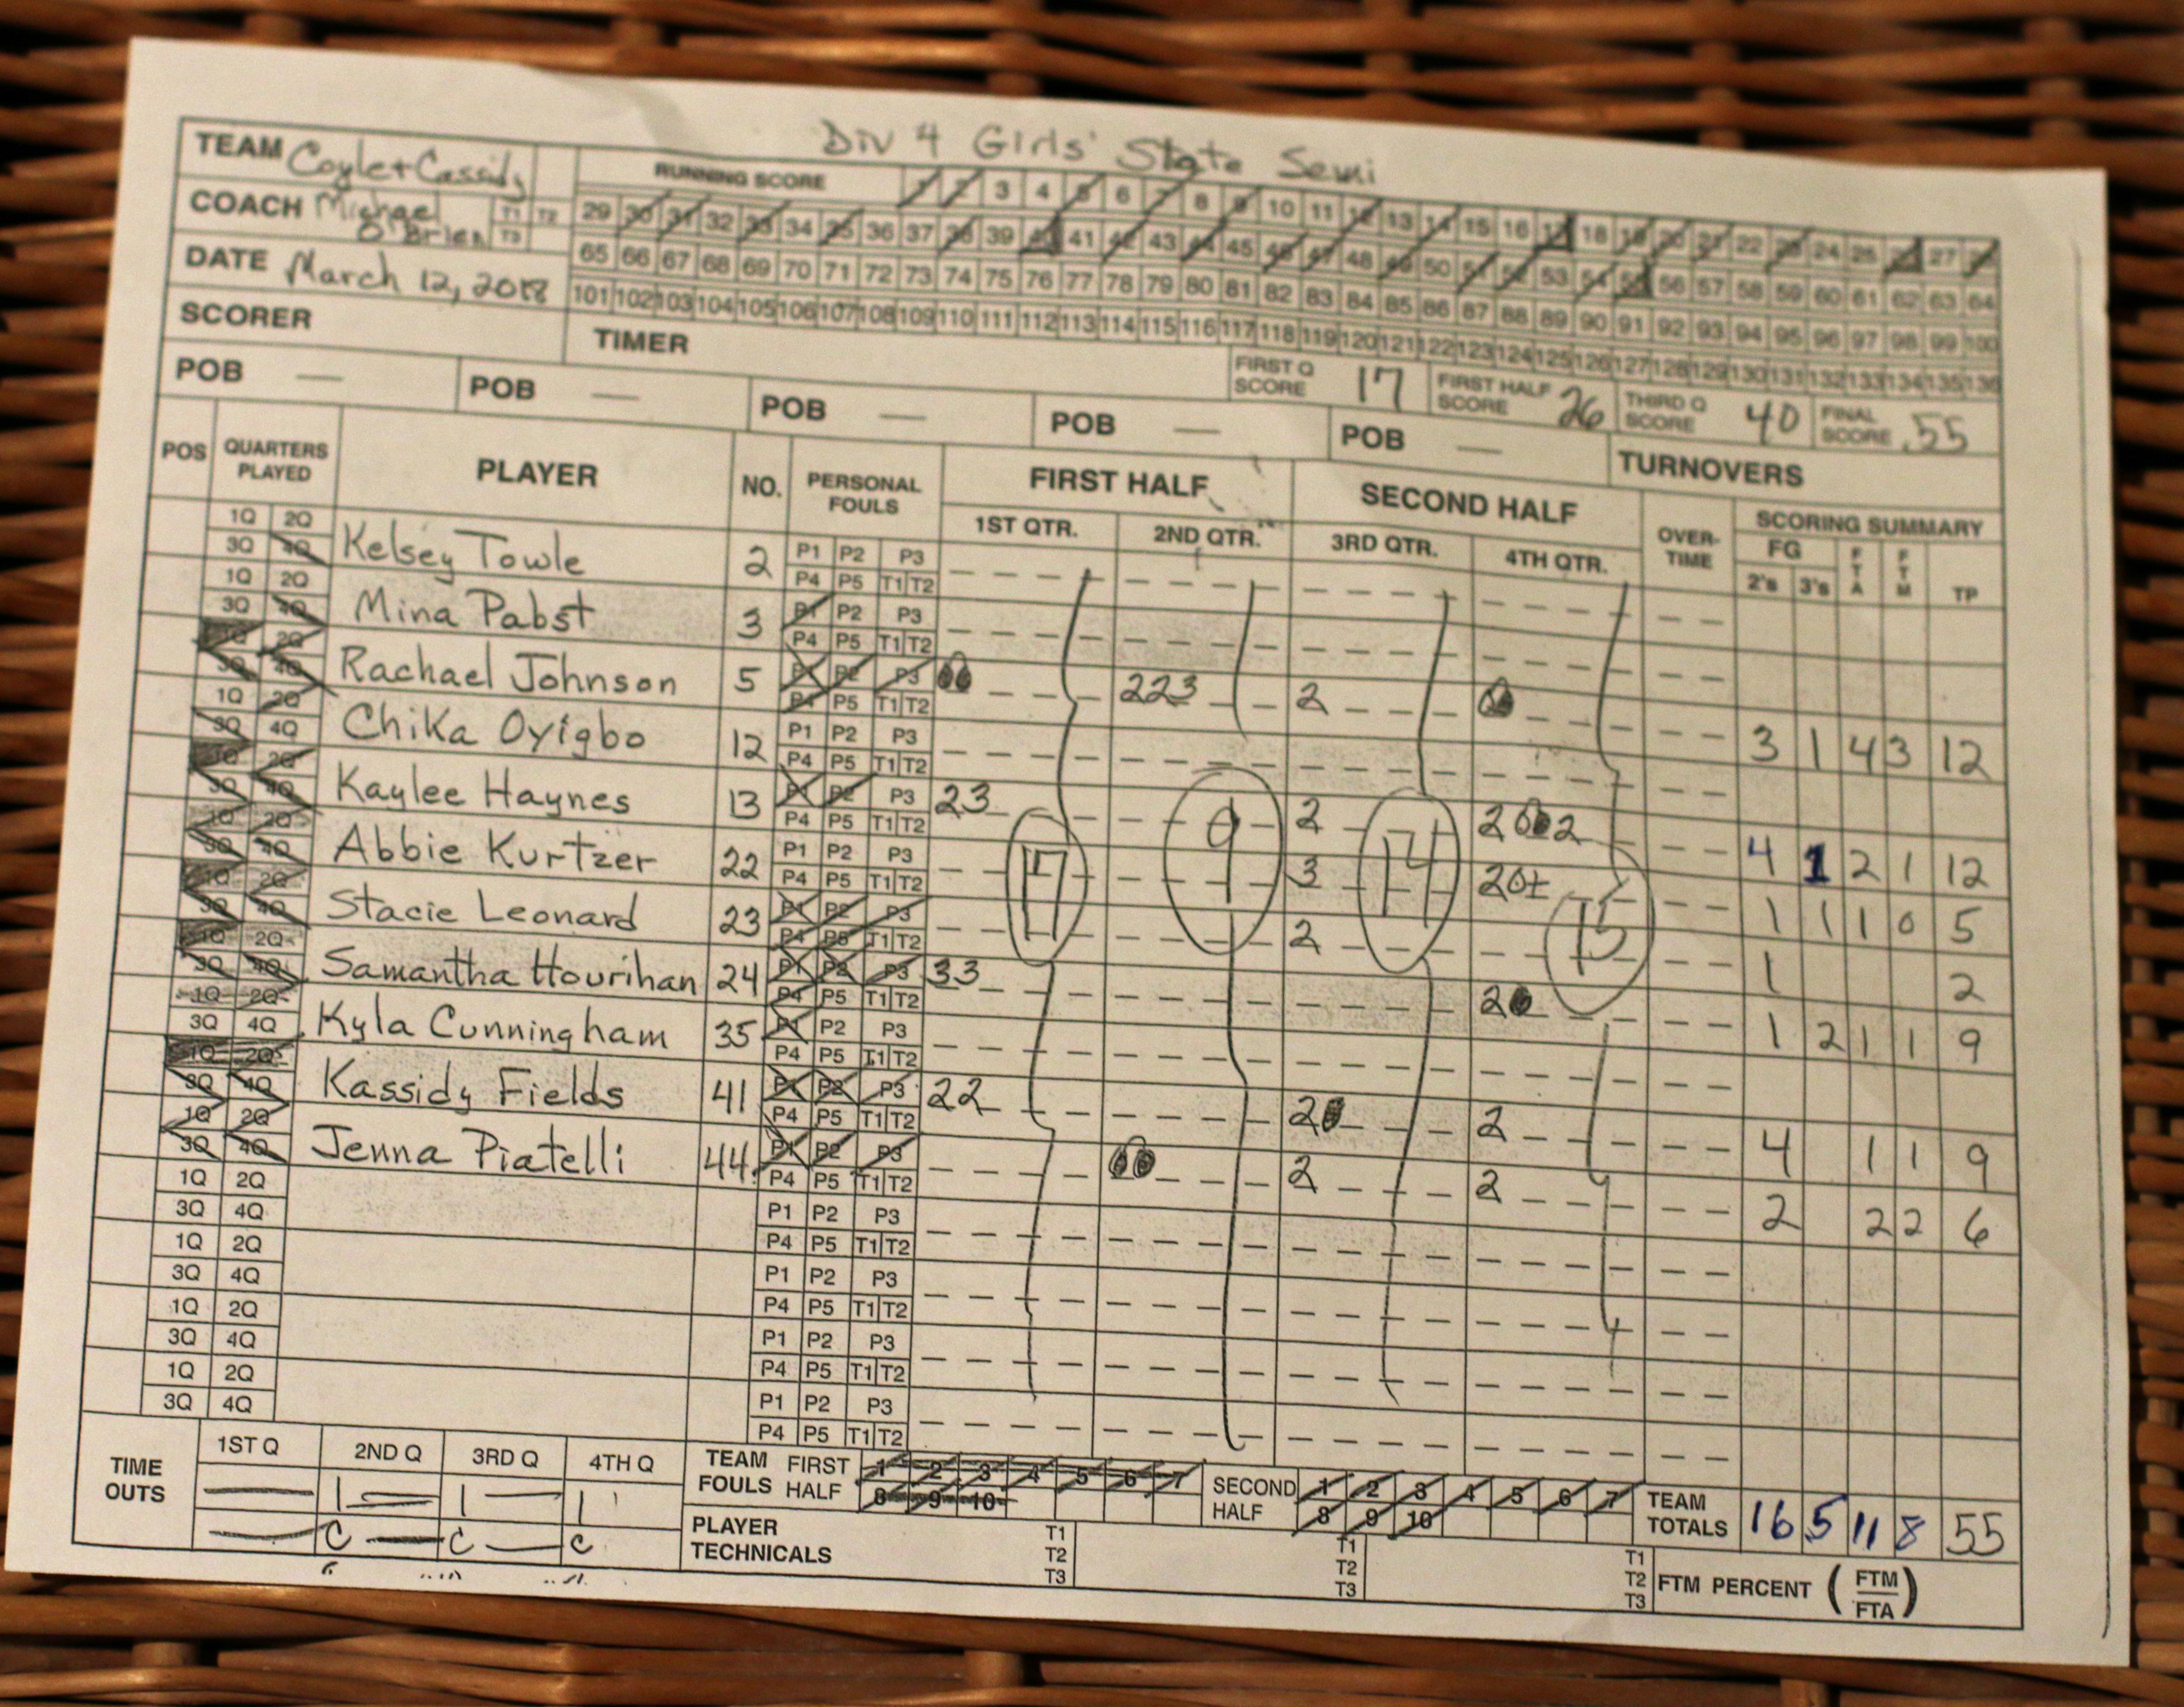 Div 4 Girls' State Semi
TEAM Coyle + Cassidy RUNNING SCORE 1 2 3 4 5 6 7 8 9 10 11 12 13 14 15 16 17 18 19 20 21 22 23 24 25 26 27 28
COACH Michael O'Brien T1 T2 T3 29 30 31 32 33 34 35 36 37 38 39 40 41 42 43 44 45 46 47 48 49 50 51 52 53 54 55 56 57 58 59 60 61 62 63 64
DATE March 12, 2018 65 66 67 68 69 70 71 72 73 74 75 76 77 78 79 80 81 82 83 84 85 86 87 88 89 90 91 92 93 94 95 96 97 98 99 100
101 102 103 104 105 106 107 108 109 110 111 112 113 114 115 116 117 118 119 120 121 122 123 124 125 126 127 128 129 130 131 132 133 134 135 136
SCORER TIMER FIRST Q SCORE 17 FIRST HALF SCORE 26 THIRD Q SCORE 40 FINAL SCORE 55
POB — POB — POB — POB — POB — TURNOVERS
POS QUARTERS PLAYED PLAYER NO. PERSONAL FOULS FIRST HALF SECOND HALF OVER-TIME SCORING SUMMARY
1ST QTR. 2ND QTR. 3RD QTR. 4TH QTR. FG 2's 3's FTA FTM TP
1Q 2Q 3Q 4Q Kelsey Towle 2 P1 P2 P3 P4 P5 T1 T2
1Q 2Q 3Q 4Q Mina Pabst 3 P1 P2 P3 P4 P5 T1 T2
1Q 2Q 3Q 4Q Rachael Johnson 5 P1 P2 P3 P4 P5 T1 T2 223 2 3 1 4 3 12
1Q 2Q 3Q 4Q Chika Oyigbo 12 P1 P2 P3 P4 P5 T1 T2
1Q 2Q 3Q 4Q Kaylee Haynes 13 P1 P2 P3 P4 P5 T1 T2 23 2 2002 4 1 2 1 12
1Q 2Q 3Q 4Q Abbie Kurtzer 22 P1 P2 P3 P4 P5 T1 T2 17 9 3 14 20 15 1 1 1 0 5
1Q 2Q 3Q 4Q Stacie Leonard 23 P1 P2 P3 P4 P5 T1 T2 2 1 2
1Q 2Q 3Q 4Q Samantha Hourihan 24 P1 P2 P3 P4 P5 T1 T2 33 20 1 2 1 1 9
1Q 2Q 3Q 4Q Kyla Cunningham 35 P1 P2 P3 P4 P5 T1 T2
1Q 2Q 3Q 4Q Kassidy Fields 41 P1 P2 P3 P4 P5 T1 T2 22 20 2 4 1 1 9
1Q 2Q 3Q 4Q Jenna Piatelli 44 P1 P2 P3 P4 P5 T1 T2 00 2 2 2 2 2 6
1Q 2Q 3Q 4Q P1 P2 P3 P4 P5 T1 T2
1Q 2Q 3Q 4Q P1 P2 P3 P4 P5 T1 T2
1Q 2Q 3Q 4Q P1 P2 P3 P4 P5 T1 T2
1Q 2Q 3Q 4Q P1 P2 P3 P4 P5 T1 T2
TIME OUTS 1ST Q 2ND Q 3RD Q 4TH Q TEAM FOULS FIRST HALF 1 2 3 4 5 6 7 8 9 10 SECOND HALF 1 2 3 4 5 6 7 8 9 10 TEAM TOTALS 16 5 11 8 55
C C C PLAYER TECHNICALS T1 T2 T3 T1 T2 T3 T1 T2 T3 FTM PERCENT (FTM/FTA)